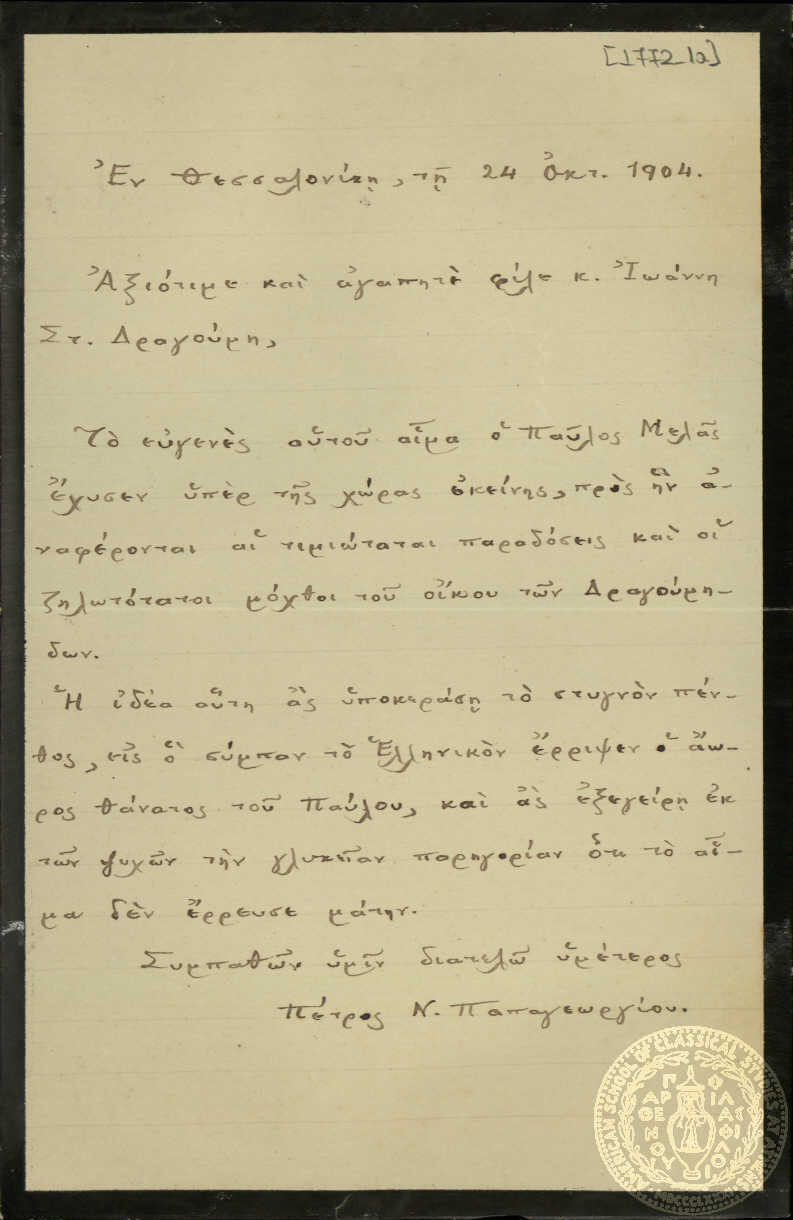 [1772_1a]
Ἐν Θεσσαλονίκῃ, τῇ 24 Ὀκτ. 1904.
Ἀξιότιμε καὶ ἀγαπητὲ φίλε κ. Ἰωάννη
Στ. Δραγούμη,
Τὸ εὐγενὲς αὑτοῦ αἷμα ὁ Παῦλος Μελᾶς
ἔχυσεν ὑπὲρ τῆς χώρας ἐκείνης, πρὸς ἣν ἀ-
ναφέρονται αἱ τιμιώταται παραδόσεις καὶ οἱ
ζηλωτότατοι μόχθοι τοῦ οἴκου τῶν Δραγούμη-
δων.
Ἡ ἰδέα αὕτη ἂς ὑποκεράσῃ τὸ στυγνὸν πέν-
θος, εἰς ὃ σύμπαν τὸ Ἑλληνικὸν ἔρριψεν ὁ ἄω-
ρος θάνατος τοῦ Παύλου, καὶ ἂς ἐξεγείρῃ ἐκ
τῶν ψυχῶν τὴν γλυκεῖαν παρηγορίαν ὅτι τὸ αἷ-
μα δὲν ἔρρευσε μάτην.
Συμπαθῶν ὑμῖν διατελῶ ὑμέτερος
Πέτρος Ν. Παπαγεωργίου.
AMERICAN SCHOOL OF CLASSICAL STUDIES AT ATHENS
ΠΑΡΘΕΝΟΥ ΦΙΛΑΣ ΦΙΛΟΙ
MDCCCLXXXI